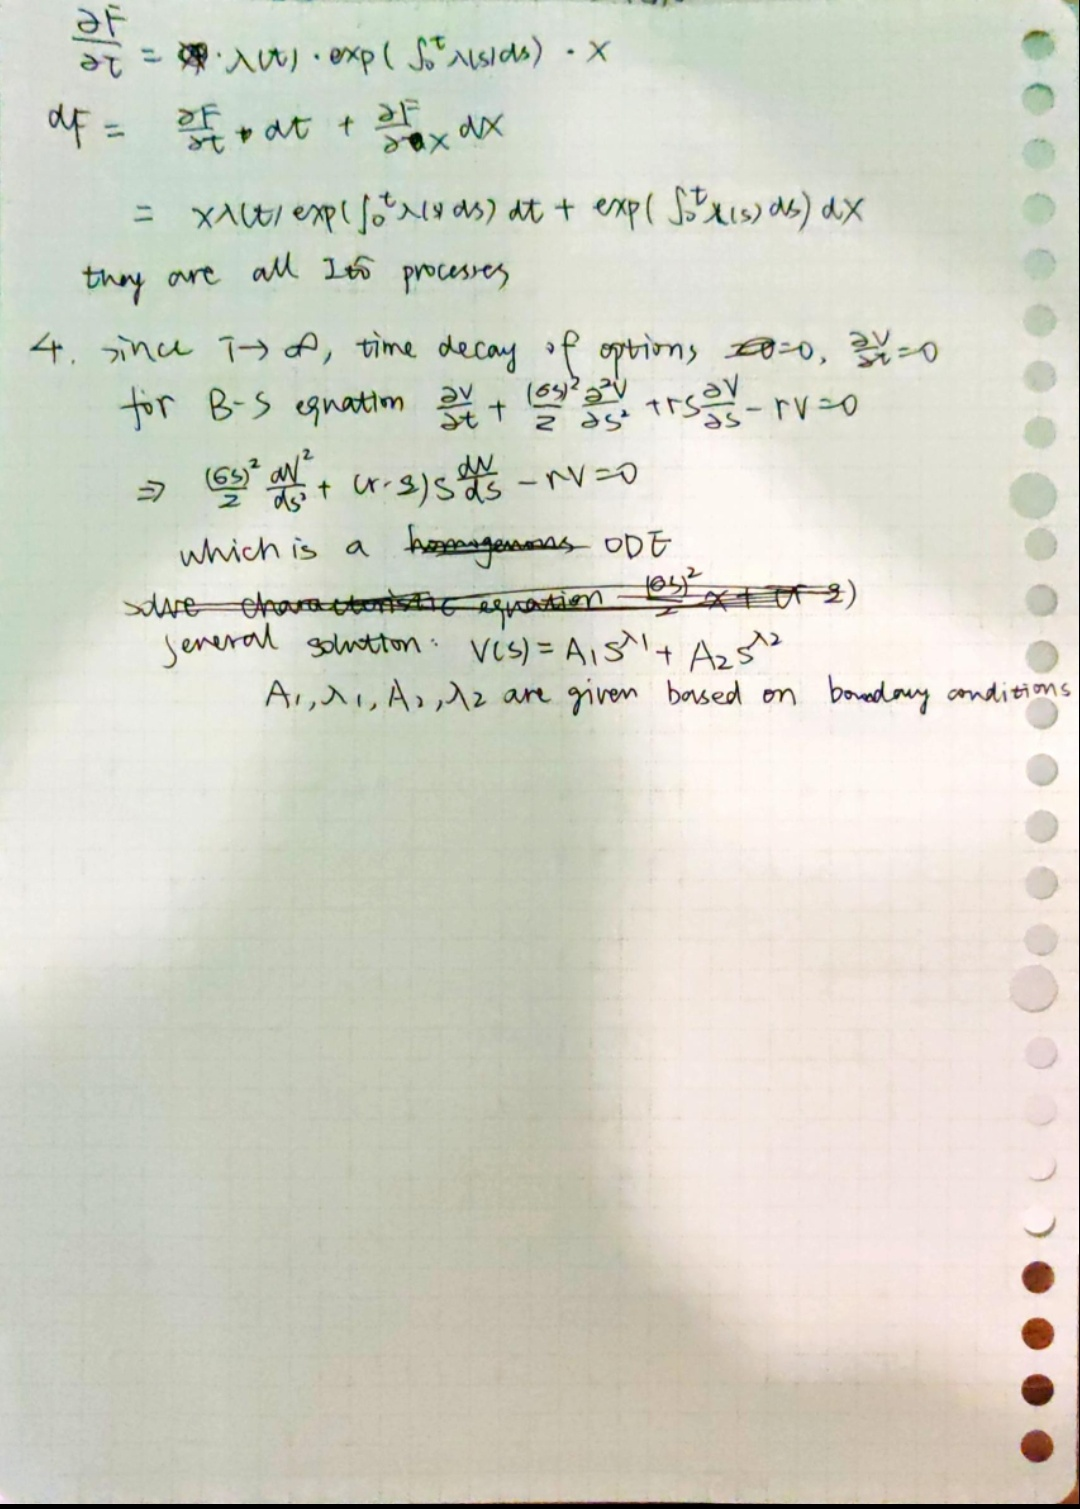 ∂F/∂t = · λ(t) · exp( ∫₀ᵗ λ(s)ds) · X
dF = ∂F/∂t · dt + ∂F/∂X dX
= Xλ(t) exp(∫₀ᵗ λ(s) ds) dt + exp( ∫₀ᵗ λ(s) ds) dX
they are all Itô processes
4. since T→ ∞, time decay of options =0, ∂V/∂t =0
for B-S equation ∂V/∂t + (σS)²/2 ∂²V/∂S² + rS ∂V/∂S - rV =0
⇒ (σS)²/2 dV²/dS² + (r-q)S dV/dS - rV =0
which is a homogenous ODE
solve characteristic equation (σS)²/2 x + (r q)
general solution: V(S) = A₁S^λ1 + A₂S^λ2
A₁, λ₁, A₂, λ2 are given based on boundary conditions